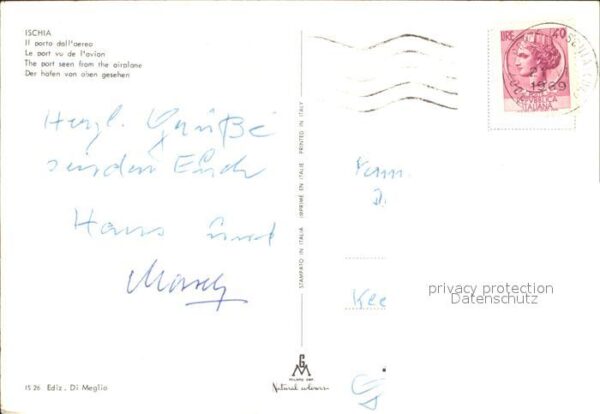 ISCHIA
Il porto dall'aereo
Le port vu de l'avion
The port seen from the airplane
Der hafen von oben gesehen
Herzl. Grüße
senden Euch
Hans und
STAMPATO IN ITALIA IMPRIME EN ITALIE PRINTED IN ITALY
LIRE 40
1969
REPUBBLICA
ITALIANA
Fam.
D.
Kle
privacy protection
Datenschutz
G
M
Natural colours
IS 26 Ediz. Di Meglio